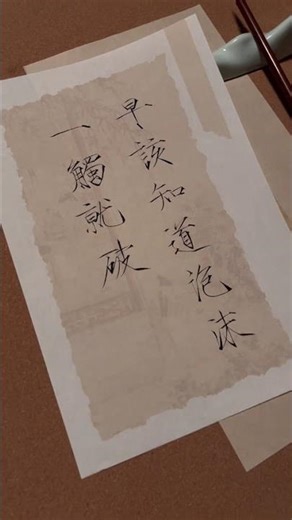 早該知道泡沫
一觸就破